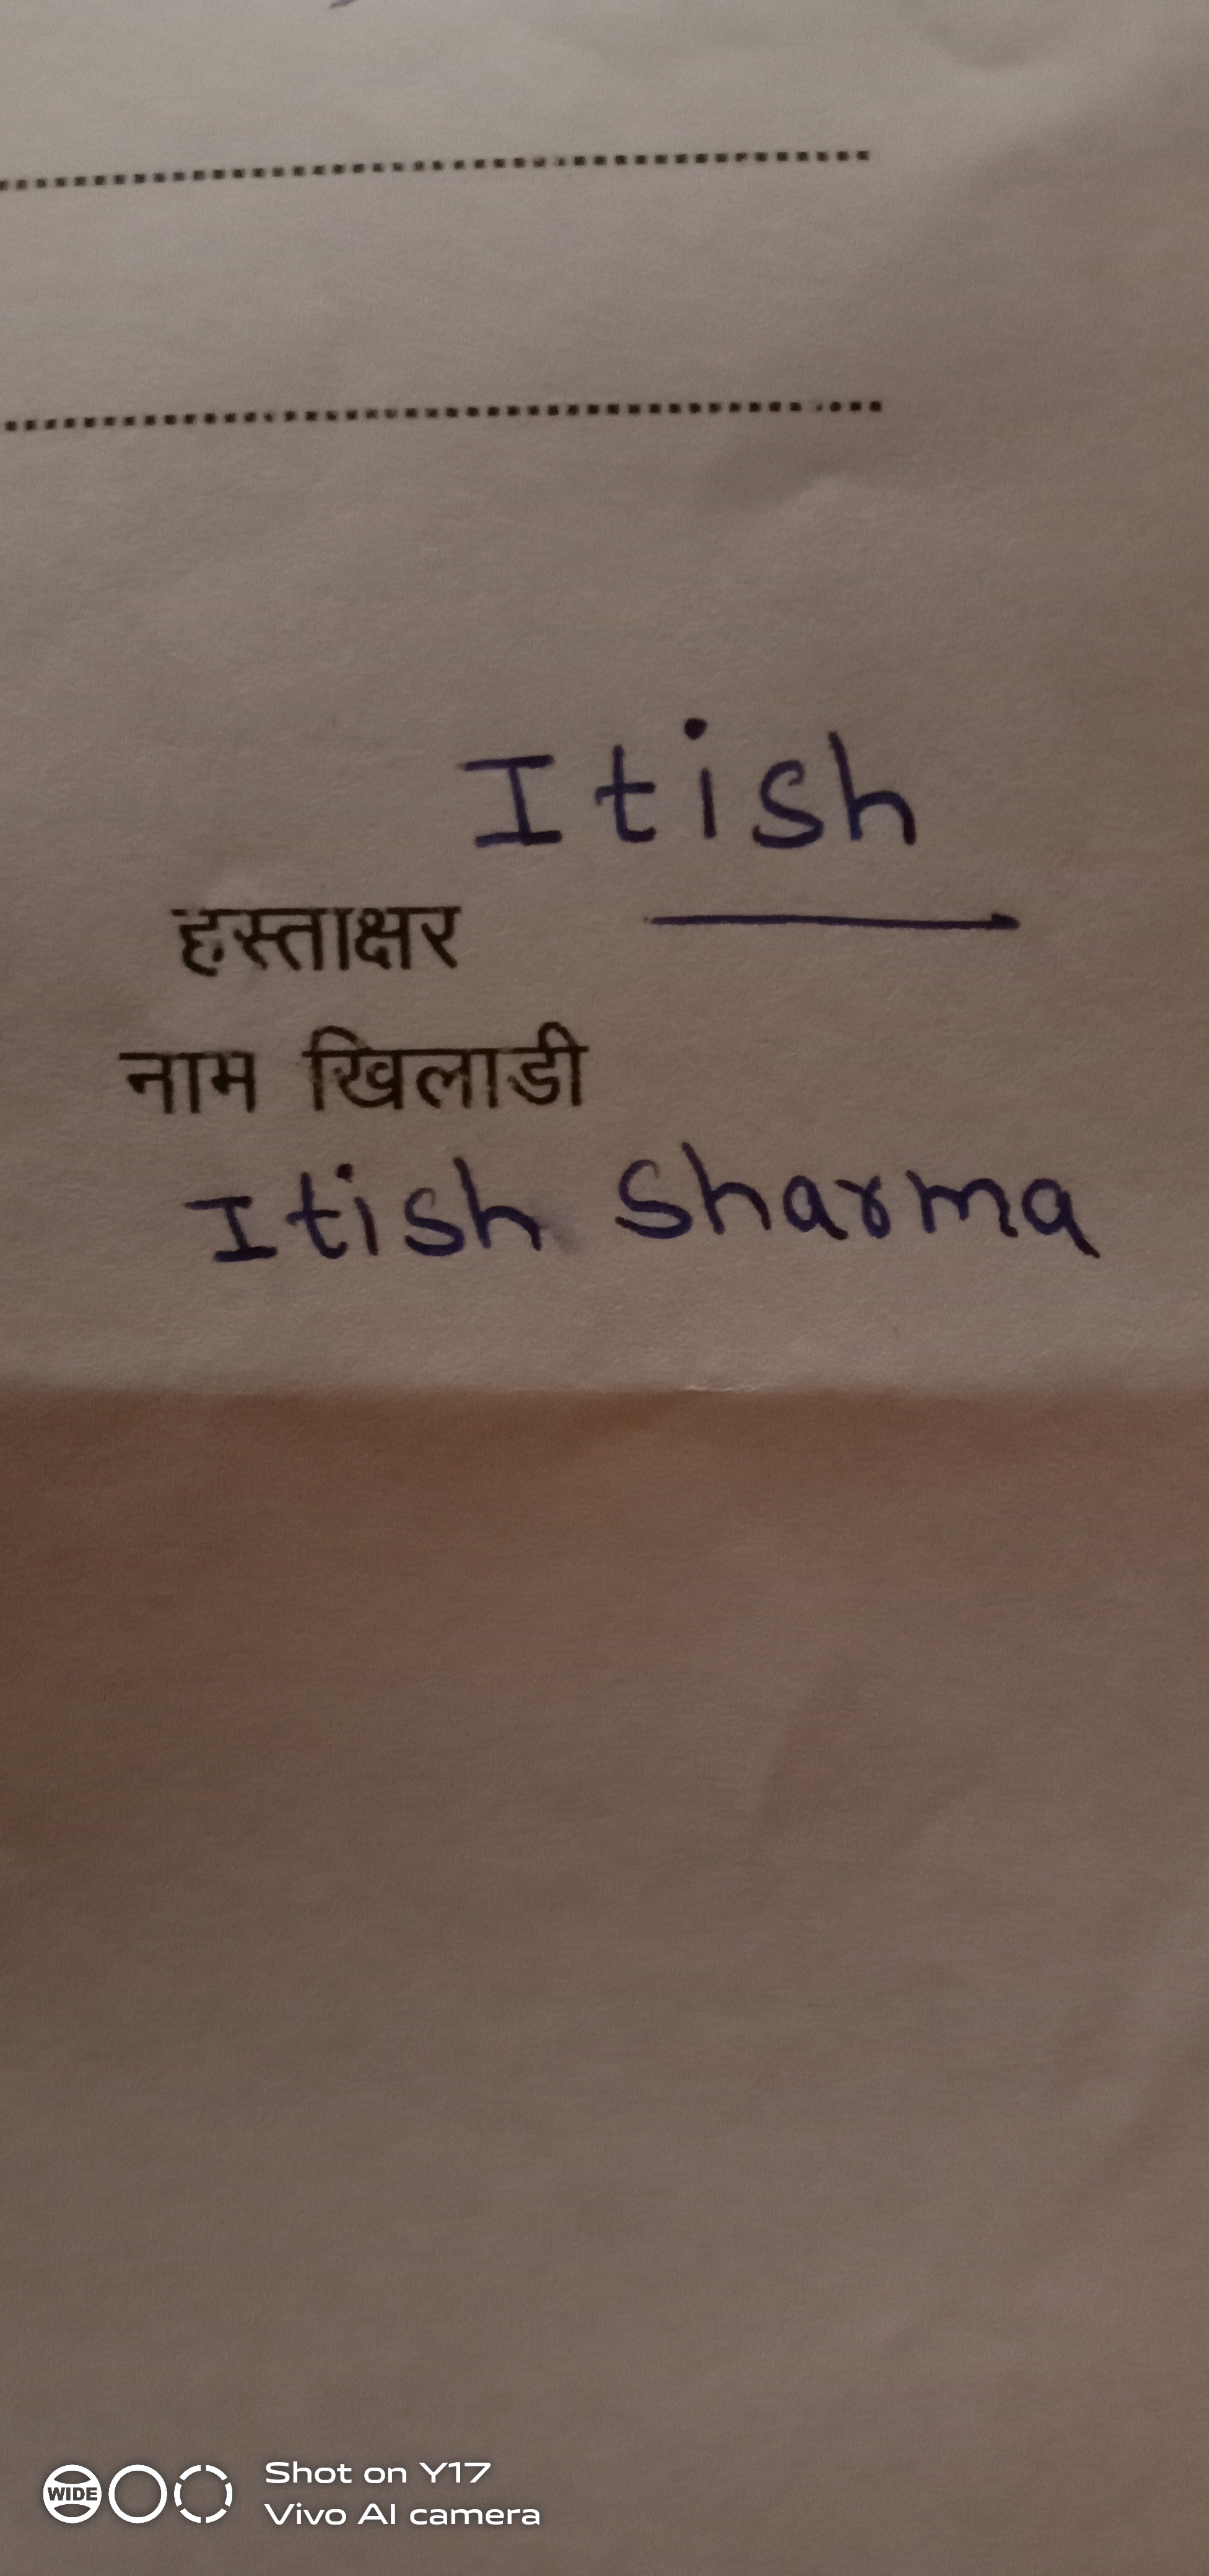 Itish
हस्ताक्षर
नाम खिलाडी
Itish Sharma
WIDE
Shot on Y17
Vivo AI camera